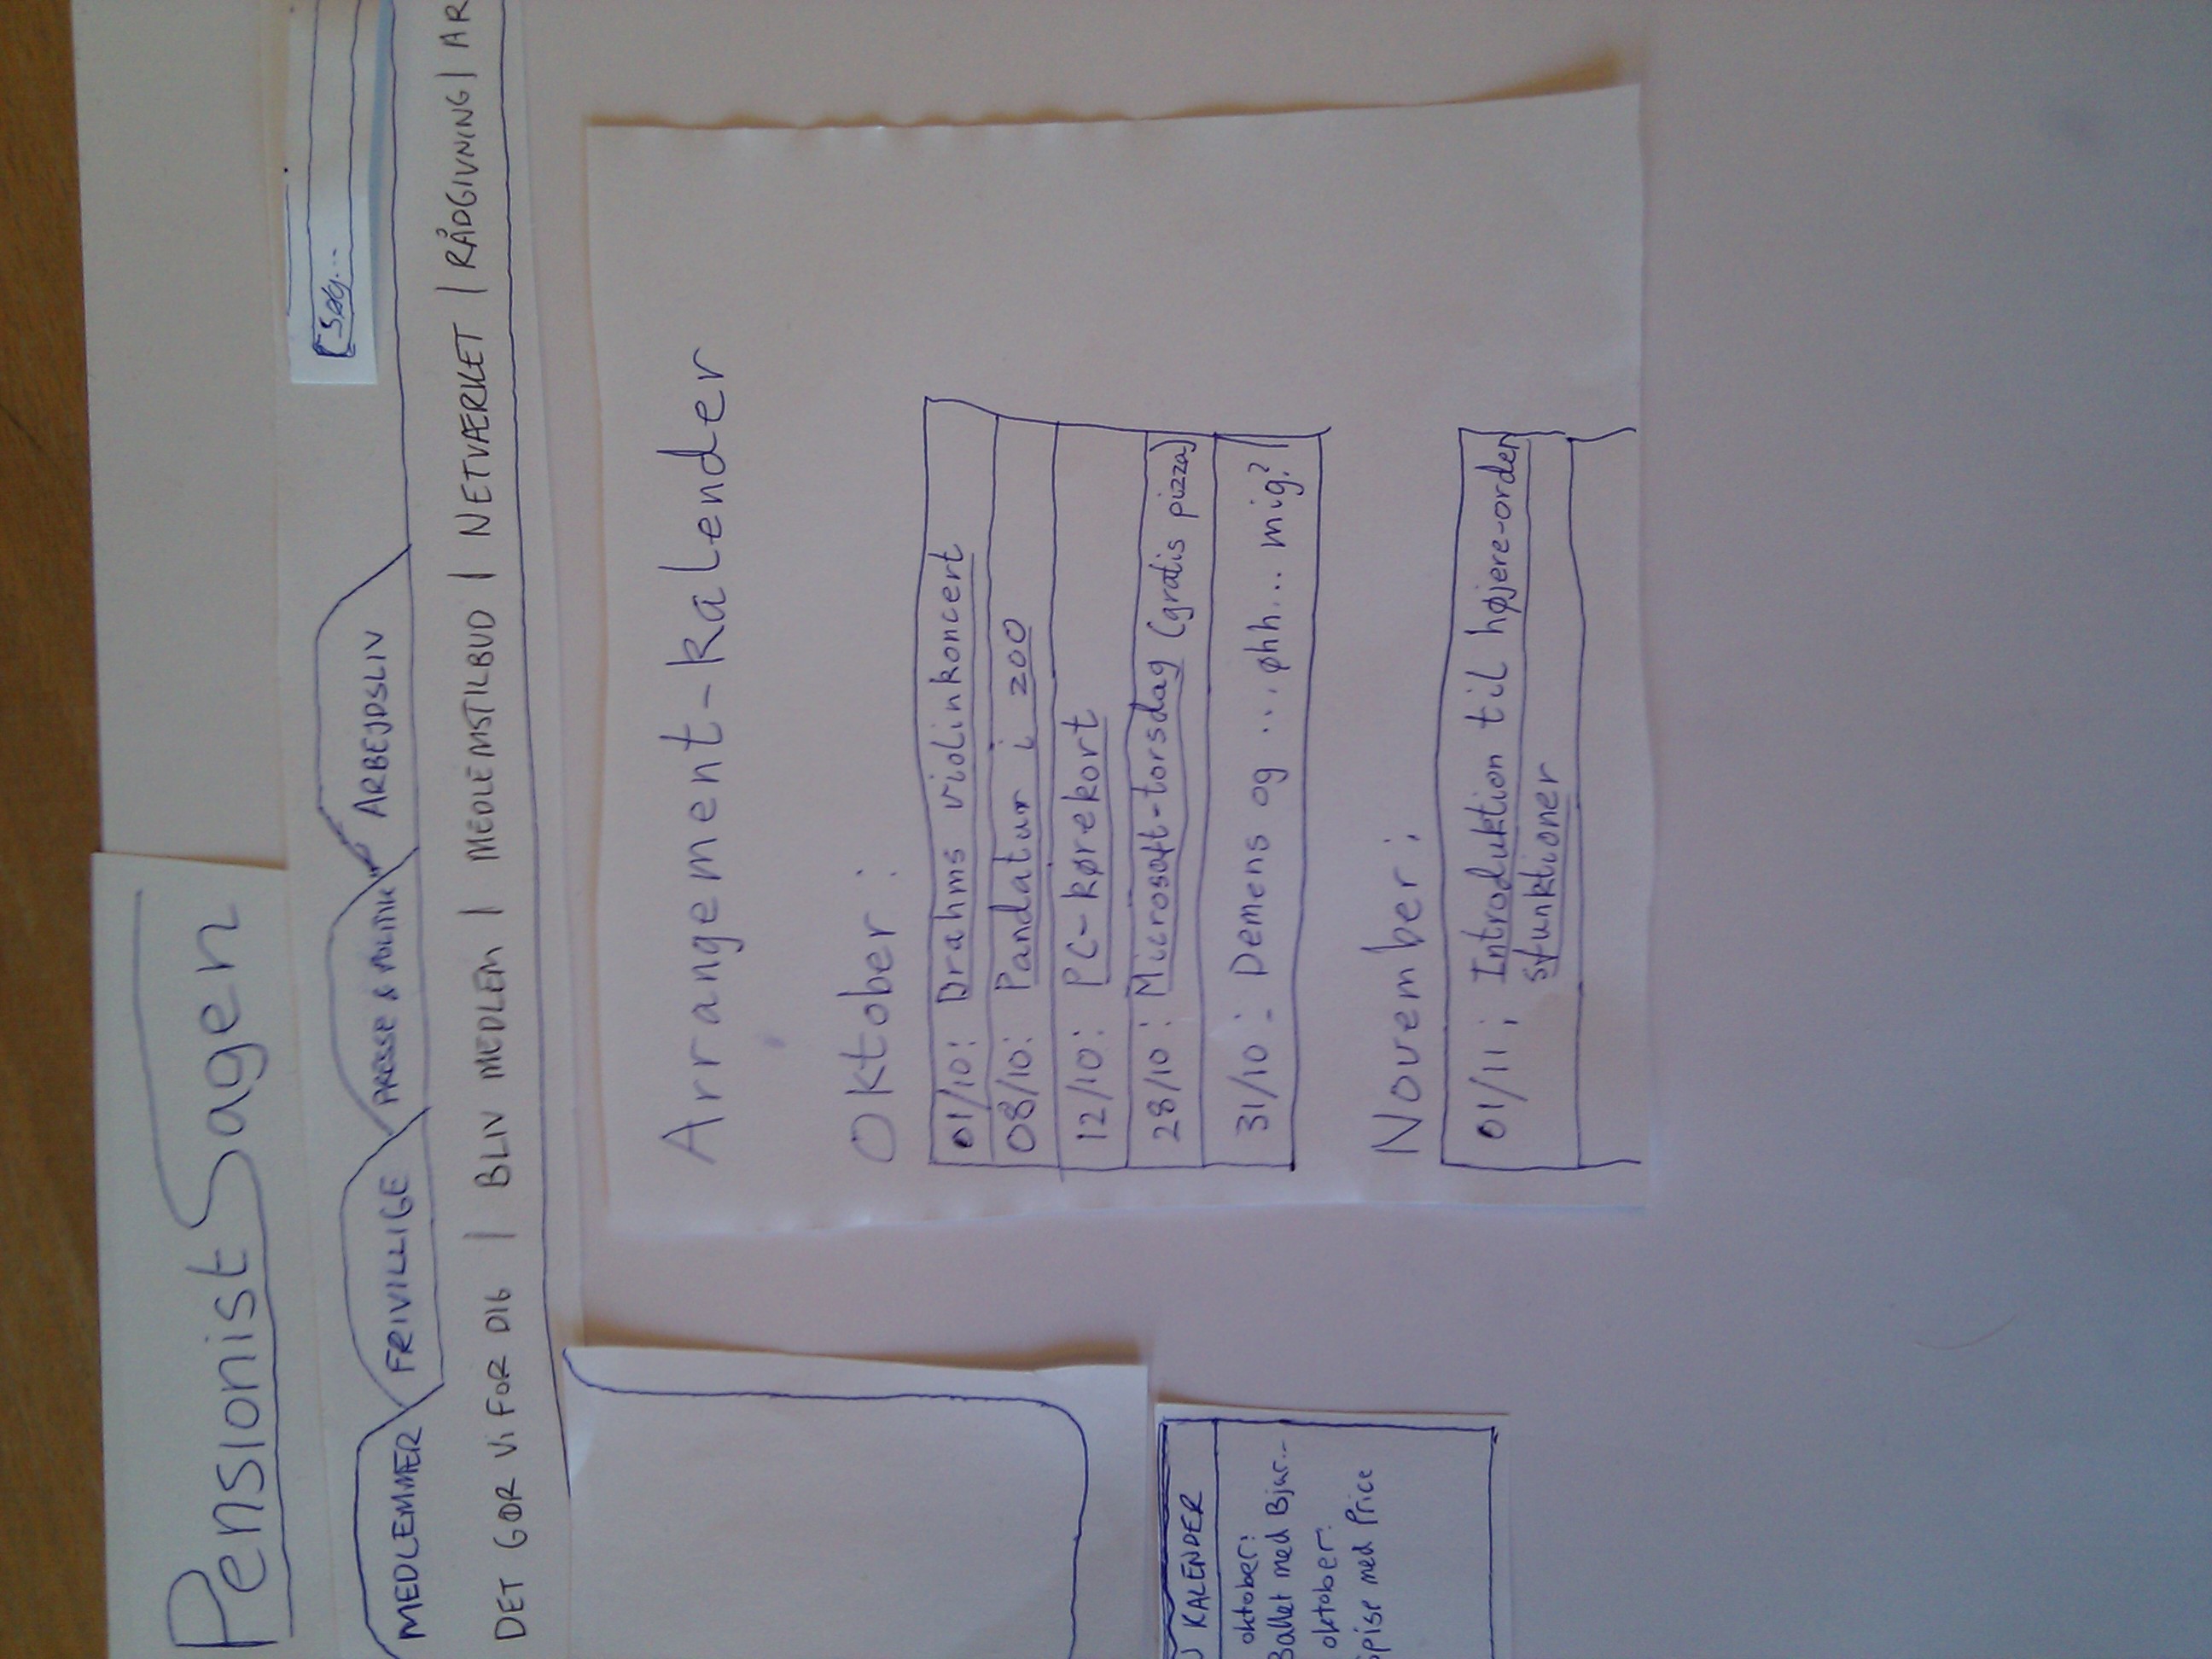 PensionistSagen
Søg...
MEDLEMMER
FRIVILLIGE
PRESSE & POLITIK
ARBEJDSLIV
DET GØR VI FOR DIG | BLIV MEDLEM | MEDLEMSTILBUD | NETVÆRKET | RÅDGIVNING | AR
Arrangement-kalender
Oktober:
01/10: Brahms violinkoncert
08/10: Pandatur i ZOO
12/10: PC-kørekort
28/10: Microsoft-torsdag (gratis pizza)
31/10: Demens og ... øhh... mig?
November:
01/11: Introduktion til højere-orden
sfunktioner
KALENDER
oktober:
Ballet med Bjur...
oktober:
spise med Price